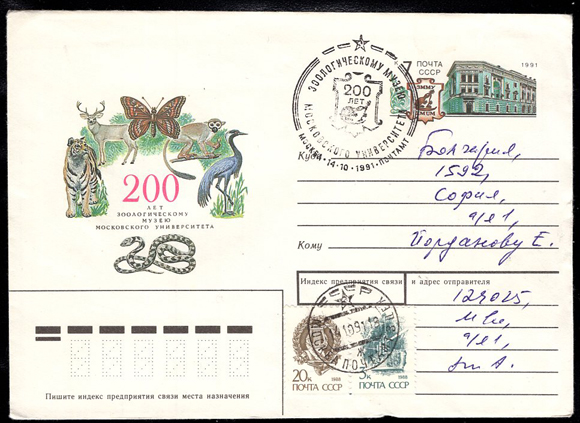 200
ЛЕТ
ЗООЛОГИЧЕСКОМУ
МУЗЕЮ
МОСКОВСКОГО УНИВЕРСИТЕТА
ЗООЛОГИЧЕСКОМУ МУЗЕЮ
200
ЛЕТ
МОСКОВСКОГО УНИВЕРСИТЕТА
МОСКВА · 14-10 · 1991 · ПОЧТАМТ
ПОЧТА
СССР
1991
ЗММУ
Куда
Болгария,
1592,
София,
п/я 1,
Кому
Йорданову Е.
Индекс предприятия связи и адрес отправителя
129025,
п/я 1,
20к
1988
ПОЧТА СССР
3к
1988
ПОЧТА СССР
Пишите индекс предприятия связи места назначения